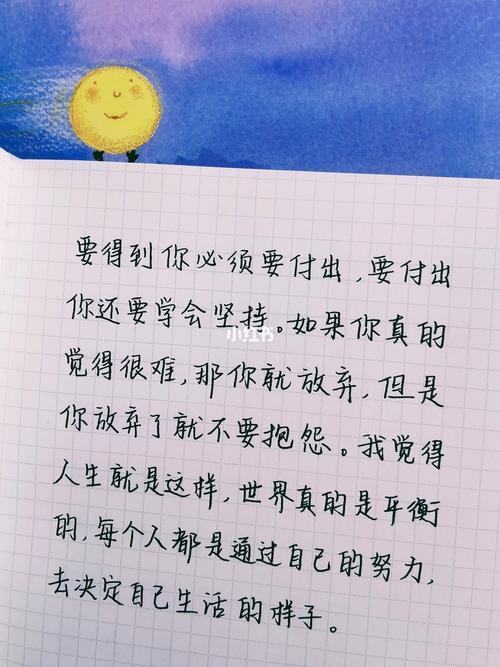 要得到你必须要付出，要付出
你还要学会坚持。如果你真的
小红书
觉得很难，那你就放弃，但是
你放弃了就不要抱怨。我觉得
人生就是这样，世界真的是平衡
的，每个人都是通过自己的努力，
去决定自己生活的样子。